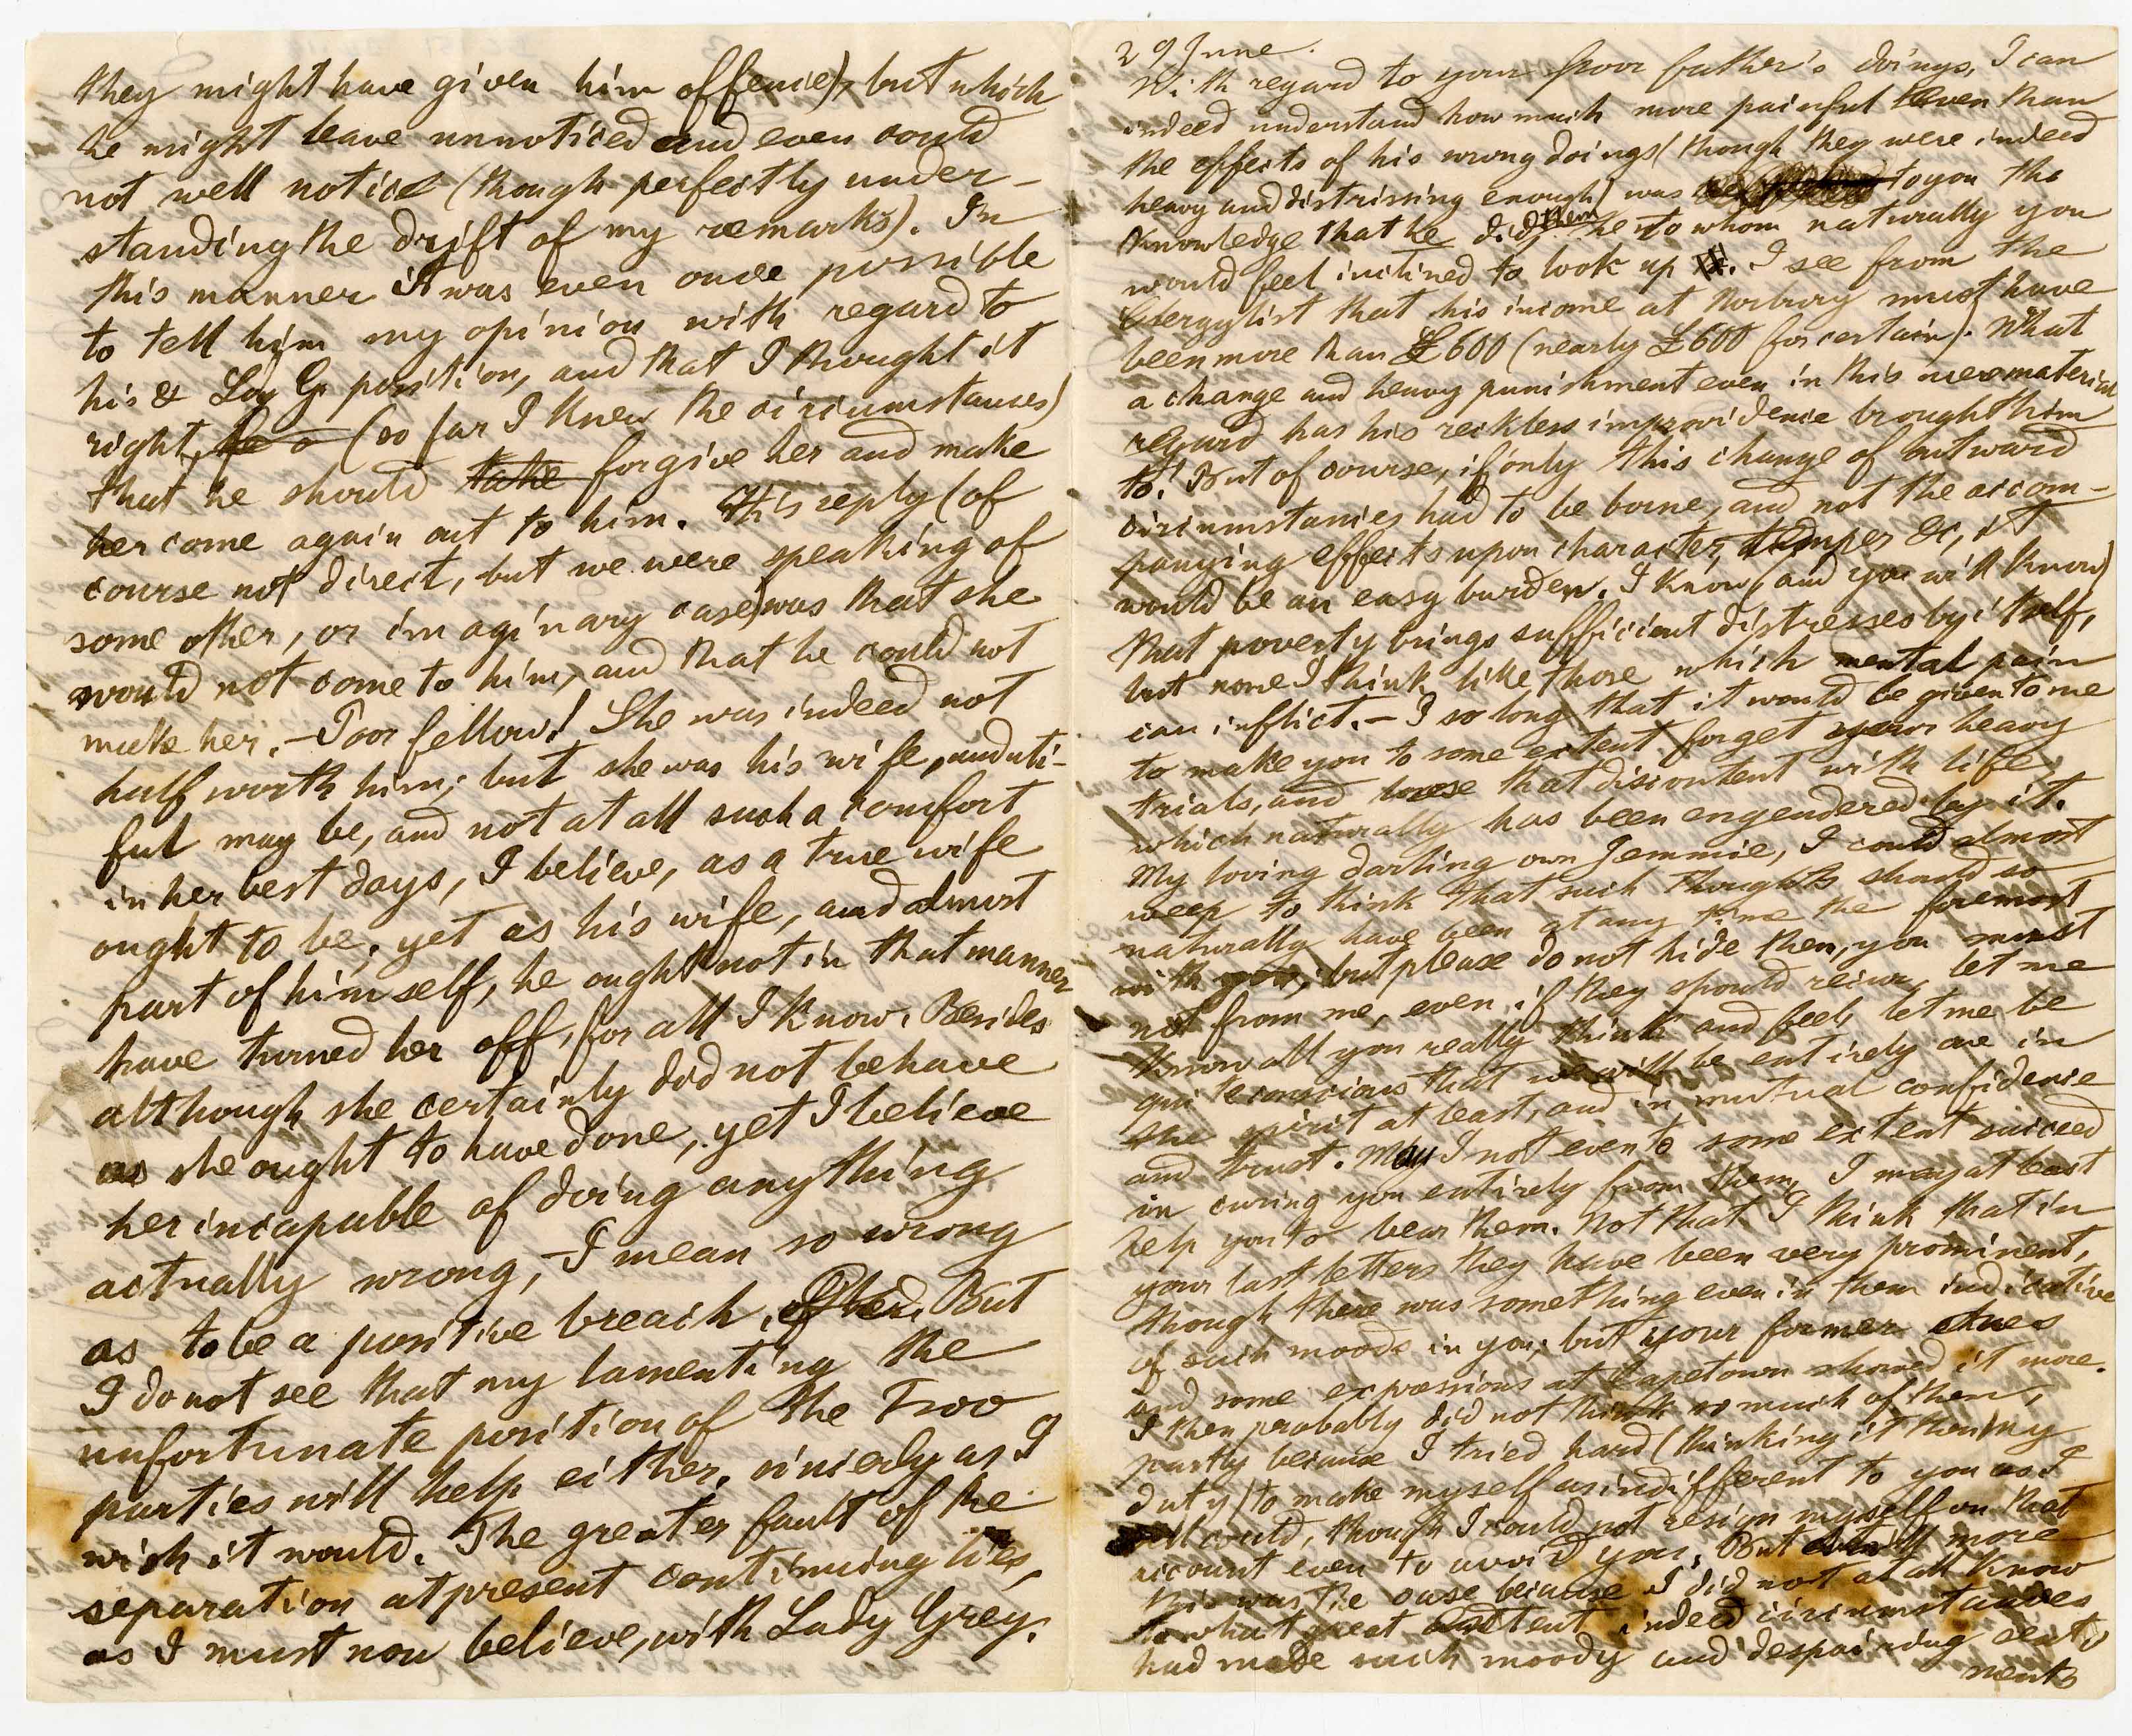 they might have given him offence), but which
he might leave unnoticed and even could
not well notice (though perfectly under-
standing the drift of my remarks). In
this manner it was even once possible
to tell him my opinion with regard to
his & Lady G position, and that I thought it
right, (so far I knew the circumstances)
that he should take forgive her and make
her come again out to him. His reply (of
course not direct, but we were speaking of
some other, or imaginary case) was that she
would not come to him, and that he could not
make her. – Poor fellow! She was indeed not
half worth him; but she was his wife, unduti-
ful may be, and not at all such a comfort
in her best days, I believe, as a true wife
ought to be; yet as his wife, and almost
part of himself, he ought not in that manner
have turned her off, for all I know. Besides
although she certainly did not behave
as she ought to have done, yet I believe
her incapable of doing anything
actually wrong, – I mean so wrong
as to be a positive breach. But
I do not see that my lamenting the
unfortunate position of the two
parties will help either, sincerly as I
wish it would. The greater fault of the
separation at present continuing lies,
as I must now believe, with Lady Grey.
29 June.
With regard to your poor father's doings, I can
indeed understand how much more painful even than
the effects of his wrong doings (though they were indeed
heavy and distressing enough) was to you the
knowledge that he did them, he to whom naturally you
would feel inclined to look up. I see from the
Clergylist that his income at Norbury must have
been more than £600 (nearly £600 for certain). What
a change and heavy punishment even in this mere material
regard has his reckless improvidence brought him
to! But of course, if only this change of outward
circumstances had to be borne, and not the accom-
panying effects upon character, temper &c, it
would be an easy burden. I know (and you will know)
that poverty brings sufficient distresses by itself,
but none I think like those which mental pain
can inflict. – I so long that it would be given to me
to make you to some extent forget your heavy
trials, and loose that discontent with life,
which naturally has been engendered by it.
My loving darling own Jemmie, I could almost
weep to think that such thoughts should so
naturally have been at any time the foremost
with you, but please do not hide them, you must
not from me, even if they should recur, let me
know all you really think and feel, let me be
quite conscious that we will be entirely one in
the spirit at least, and in mutual confidence
and trust. May I not even to some extent succeed
in curing you entirely from them, I may at least
help you to bear them. Not that I think that in
your last letters they have been very prominent,
though there was something even in them indicative
of such moods in you; but your former ones
and some expressions at Capetown showed it more.
I then probably did not think so much of them,
partly because I tried hard (thinking it then my
duty) to make myself as indifferent to you as I
well could, though I could not resign myself on that
account even to avoid you. But still more
this was the case because I did not at all know
to what great extent indeed circumstances
had made such moody and despairing senti
ments